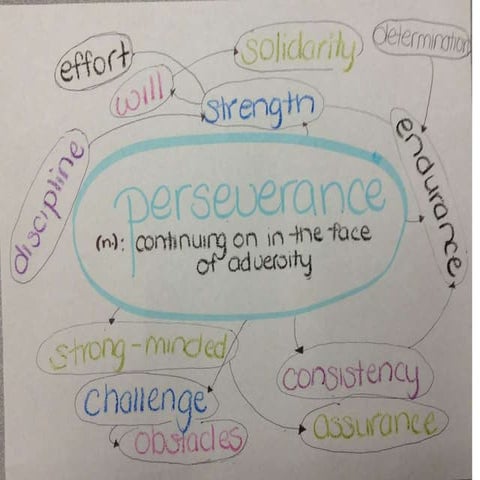 effort
solidarity
determination
will
strength
endurance
discipline
perseverance
(n): continuing on in the face
of adversity
strong-minded
consistency
challenge
assurance
obstacles